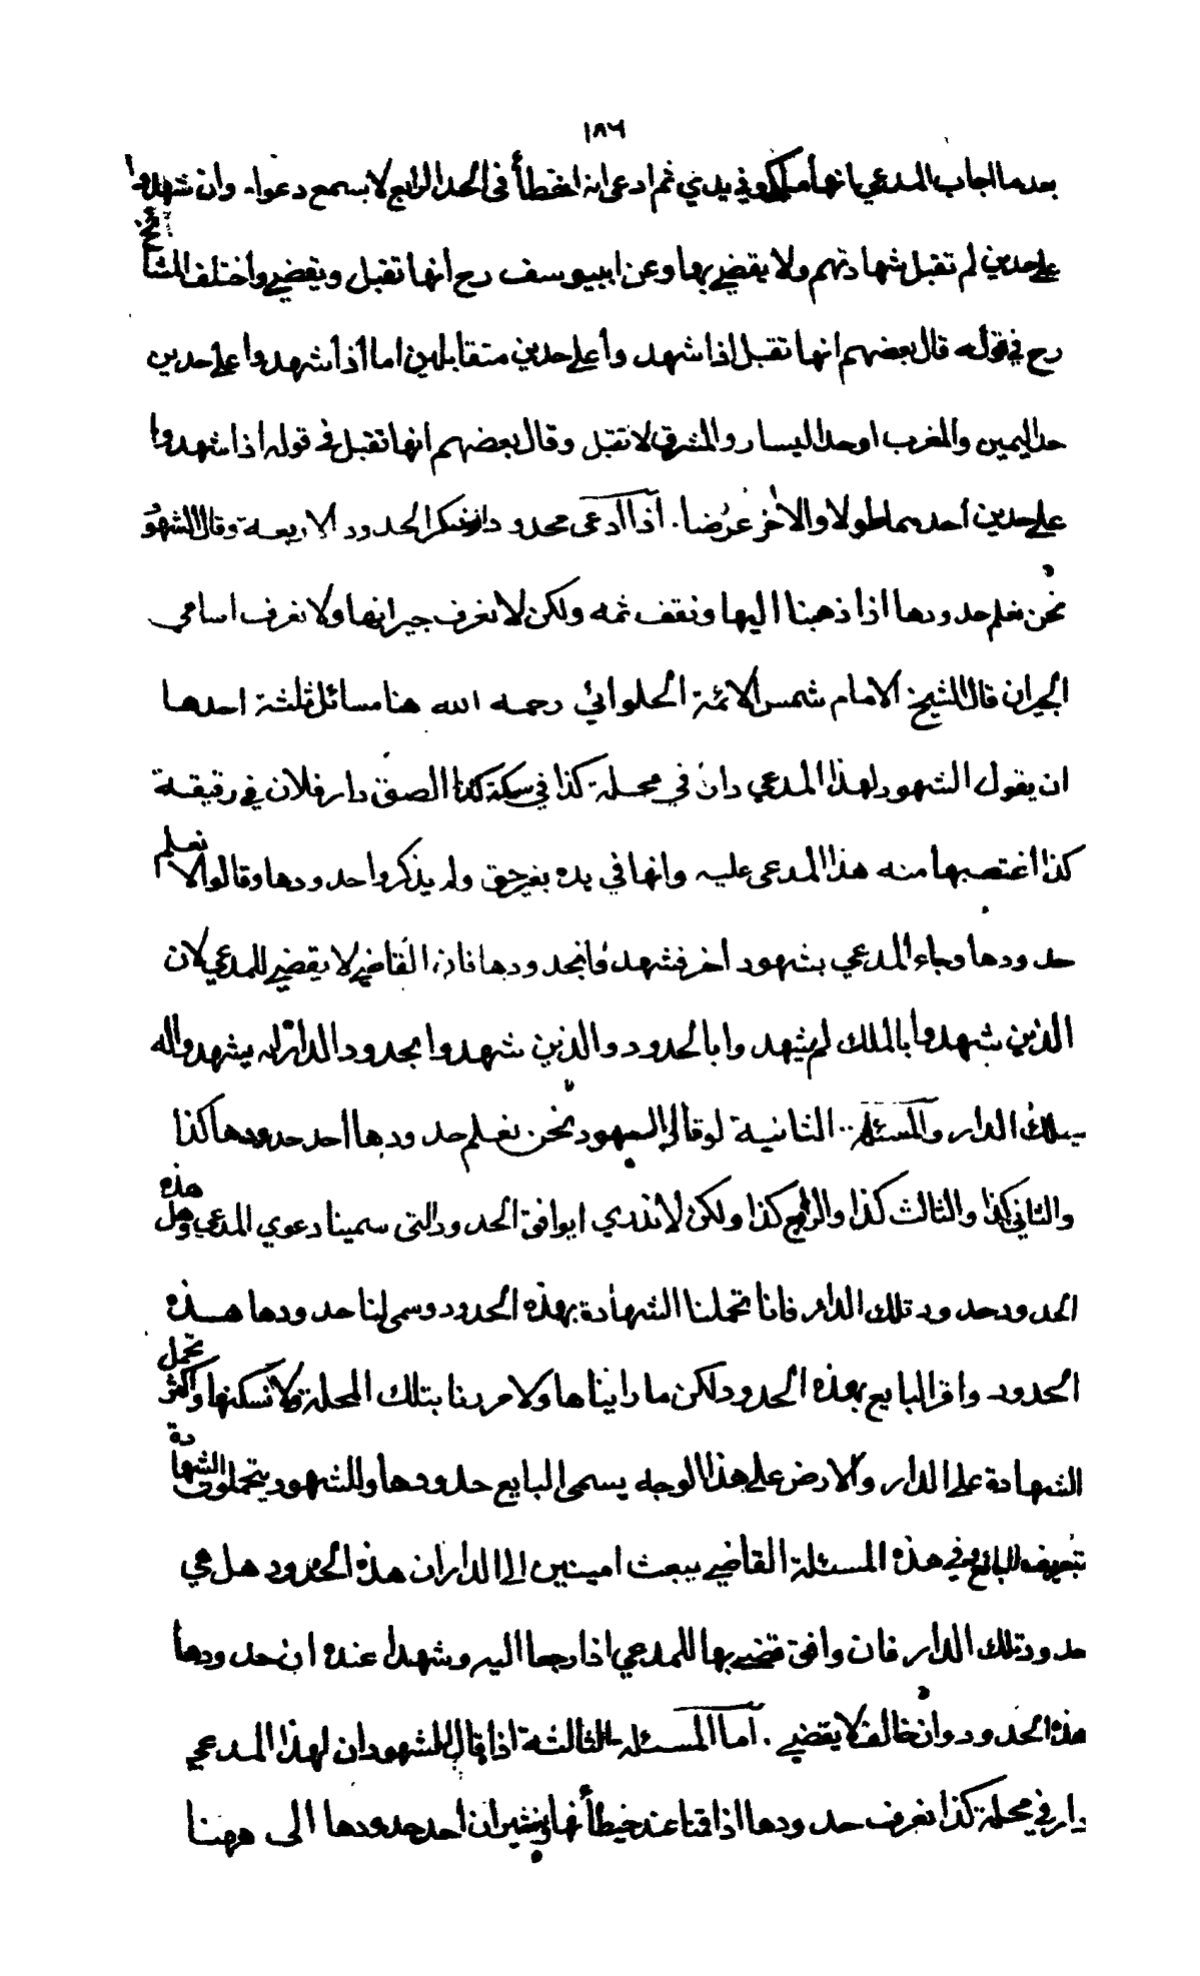 ١٨٦
بعدما اجاب المدعي بانها ملكي وفي يدي ثم ادعى انه اخطأ فى الحد الرابع لا يسمع دعواه وان شهدوا
على حدين لم تقبل شهادتهم ولا يقضي بها وعن ابييوسف رح انها تقبل ويقضي واختلف المشائخ
رح في قوله قال بعضهم انها تقبل اذا شهدوا على حدين متقابلين اما اذا شهدوا على حدين
حد اليمين والمغرب او حد اليسار والمشرق لا تقبل وقال بعضهم انها تقبل فى قوله اذا شهدوا
على حدين احدهما طولا والاخر عرضا. اذا ادعى محدودا وذكر الحدود الاربعة وقال الشهود
نحن نعلم حدودها اذا ذهبنا اليها ونقف ثمه ولكن لا نعرف جيرانها ولا نعرف اسامي
الجيران قال الشيخ الامام شمس الائمة الحلوائي رحمه الله هنا مسائل ثلثة احدها
ان يقول الشهود لهذا المدعي دار في محلة كذا في سكة كذا الصق دار فلان في رقيقة
كذا اغتصبها منه هذا المدعى عليه وانها في يده بغير حق ولم يذكروا حدودها وقالوا لا نعلم
حدودها وجاء المدعي بشهود اخر فشهدوا بحدودها فان القاضي لا يقضي للمدعي لان
الذين شهدوا بالملك لم يشهدوا بالحدود والذين شهدوا بحدود الدار لم يشهدوا له
بملك الدار والمسئلة.. الثانية لو قال الشهود نحن نعلم حدودها احد حدودها كذا
والثاني كذا والثالث كذا والرابع كذا ولكن لا ندري ايوافق الحدود التى سمينا دعوي المدعي وهل هذه
الحدود حدود تلك الدار فانا تحملنا الشهادة بهذه الحدود وسمى لنا حدودها هذه
الحدود واقر البايع بهذه الحدود لكن ما رايناها ولا مررنا بتلك المحلة ولا نسكنها واكثر تحمل
الشهادة على الدار والارض على هذا الوجه يسمى البايع حدودها والشهود يتحملون الشهادة
بتعريف البائع وفي هذه المسئلة القاضي يبعث امينين الى الدار ان هذه الحدود هل هي
حدود تلك الدار فان وافق قضى بها للمدعي اذا رجعا اليه وشهدا عنده ان حدودها
هذه الحدود وان خالف لا يقضي. اما المسئلة الثالثة اذا قال الشهود ان لهذا المدعي
دار في محلة كذا نعرف حدودها اذا قمنا عند حيطانها ونشير ان احد حدودها الى ههنا